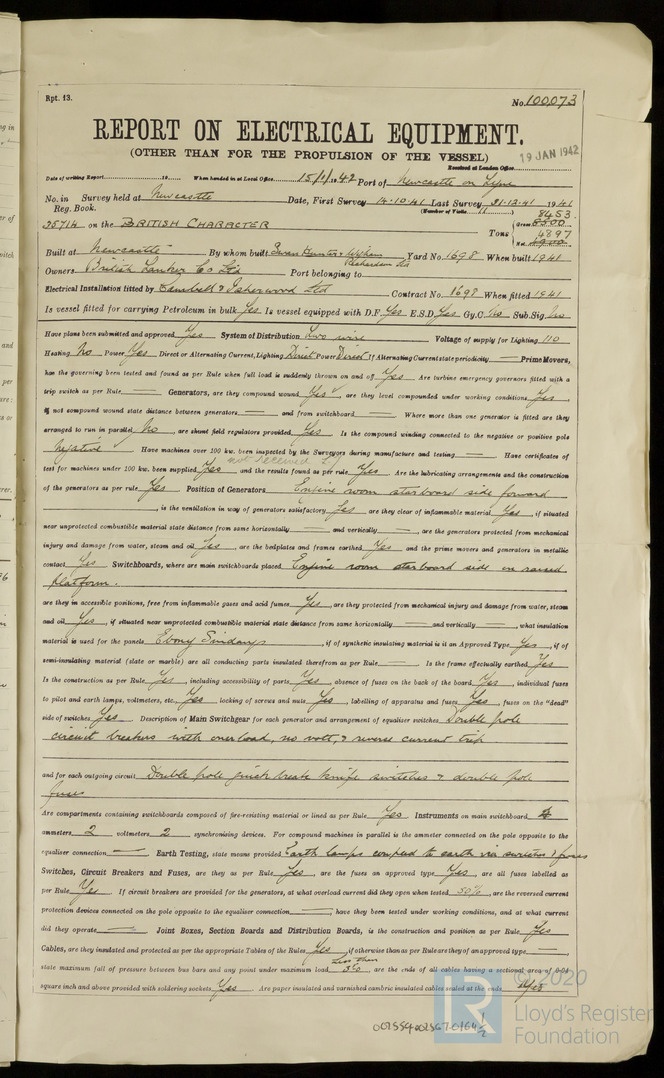 Rpt. 13.
No. 100,073
REPORT ON ELECTRICAL EQUIPMENT.
(OTHER THAN FOR THE PROPULSION OF THE VESSEL)
19 JAN 1942
Received at London Office
Date of writing Report 19 When handed in at Local Office 15/1/1942 Port of Newcastle on Tyne
No. in Survey held at Newcastle Date, First Survey 14-10-41 Last Survey 31-12-41 1941
Reg. Book. (Number of Visits 11)
35714 on the BRITISH CHARACTER Tons Gross 8453 8300 Net 4897 4900
Built at Newcastle By whom built Swan Hunter & Wigham Richardson Ltd Yard No. 1698 When built 1941
Owners British Tanker Co Ltd Port belonging to
Electrical Installation fitted by Campbell & Isherwood Ltd Contract No. 1698 When fitted 1941
Is vessel fitted for carrying Petroleum in bulk Yes Is vessel equipped with D.F. Yes E.S.D. Yes Gy.C. No Sub.Sig. No
Have plans been submitted and approved Yes System of Distribution Two wire Voltage of supply for Lighting 110
Heating No Power Yes Direct or Alternating Current, Lighting Direct Power Direct If Alternating Current state periodicity — Prime Movers,
has the governing been tested and found as per Rule when full load is suddenly thrown on and off Yes Are turbine emergency governors fitted with a
trip switch as per Rule — Generators, are they compound wound Yes, are they level compounded under working conditions Yes,
if not compound wound state distance between generators — and from switchboard — Where more than one generator is fitted are they
arranged to run in parallel No, are shunt field regulators provided Yes Is the compound winding connected to the negative or positive pole
Negative Have machines over 100 kw. been inspected by the Surveyors during manufacture and testing — Have certificates of
not received
test for machines under 100 kw. been supplied Yes and the results found as per rule Yes Are the lubricating arrangements and the construction
of the generators as per rule Yes Position of Generators Engine room starboard side forward
, is the ventilation in way of generators satisfactory Yes are they clear of inflammable material Yes, if situated
near unprotected combustible material state distance from same horizontally — and vertically —, are the generators protected from mechanical
injury and damage from water, steam and oil Yes, are the bedplates and frames earthed Yes and the prime movers and generators in metallic
contact Yes Switchboards, where are main switchboards placed Engine room starboard side on raised
platform.
are they in accessible positions, free from inflammable gases and acid fumes Yes, are they protected from mechanical injury and damage from water, steam
and oil Yes, if situated near unprotected combustible material state distance from same horizontally — and vertically —, what insulation
material is used for the panels Ebony Sindanyo, if of synthetic insulating material is it an Approved Type Yes, if of
semi-insulating material (slate or marble) are all conducting parts insulated therefrom as per Rule — Is the frame effectually earthed Yes
Is the construction as per Rule Yes, including accessibility of parts Yes, absence of fuses on the back of the board Yes, individual fuses
to pilot and earth lamps, voltmeters, etc. Yes locking of screws and nuts Yes, labelling of apparatus and fuses Yes, fuses on the "dead"
side of switches Yes. Description of Main Switchgear for each generator and arrangement of equaliser switches Double pole
circuit breakers with overload, no volt, & reverse current trip
and for each outgoing circuit Double pole quick break knife switches & double pole
fuses
Are compartments containing switchboards composed of fire-resisting material or lined as per Rule Yes Instruments on main switchboard 4
ammeters 2 voltmeters 2 synchronising devices. For compound machines in parallel is the ammeter connected on the pole opposite to the
equaliser connection — Earth Testing, state means provided Earth lamps coupled to earth via switches & fuses
Switches, Circuit Breakers and Fuses, are they as per Rule Yes, are the fuses an approved type Yes, are all fuses labelled as
per Rule Yes If circuit breakers are provided for the generators, at what overload current did they open when tested 50%, are the reversed current
protection devices connected on the pole opposite to the equaliser connection —, have they been tested under working conditions, and at what current
did they operate — Joint Boxes, Section Boards and Distribution Boards, is the construction and position as per Rule Yes
Cables, are they insulated and protected as per the appropriate Tables of the Rules Yes, if otherwise than as per Rule are they of an approved type —
state maximum fall of pressure between bus bars and any point under maximum load Less than 3%, are the ends of all cables having a sectional area of 0.04
square inch and above provided with soldering sockets Yes Are paper insulated and varnished cambric insulated cables sealed at the ends Yes
© 2020
LR
Lloyd's Register
Foundation